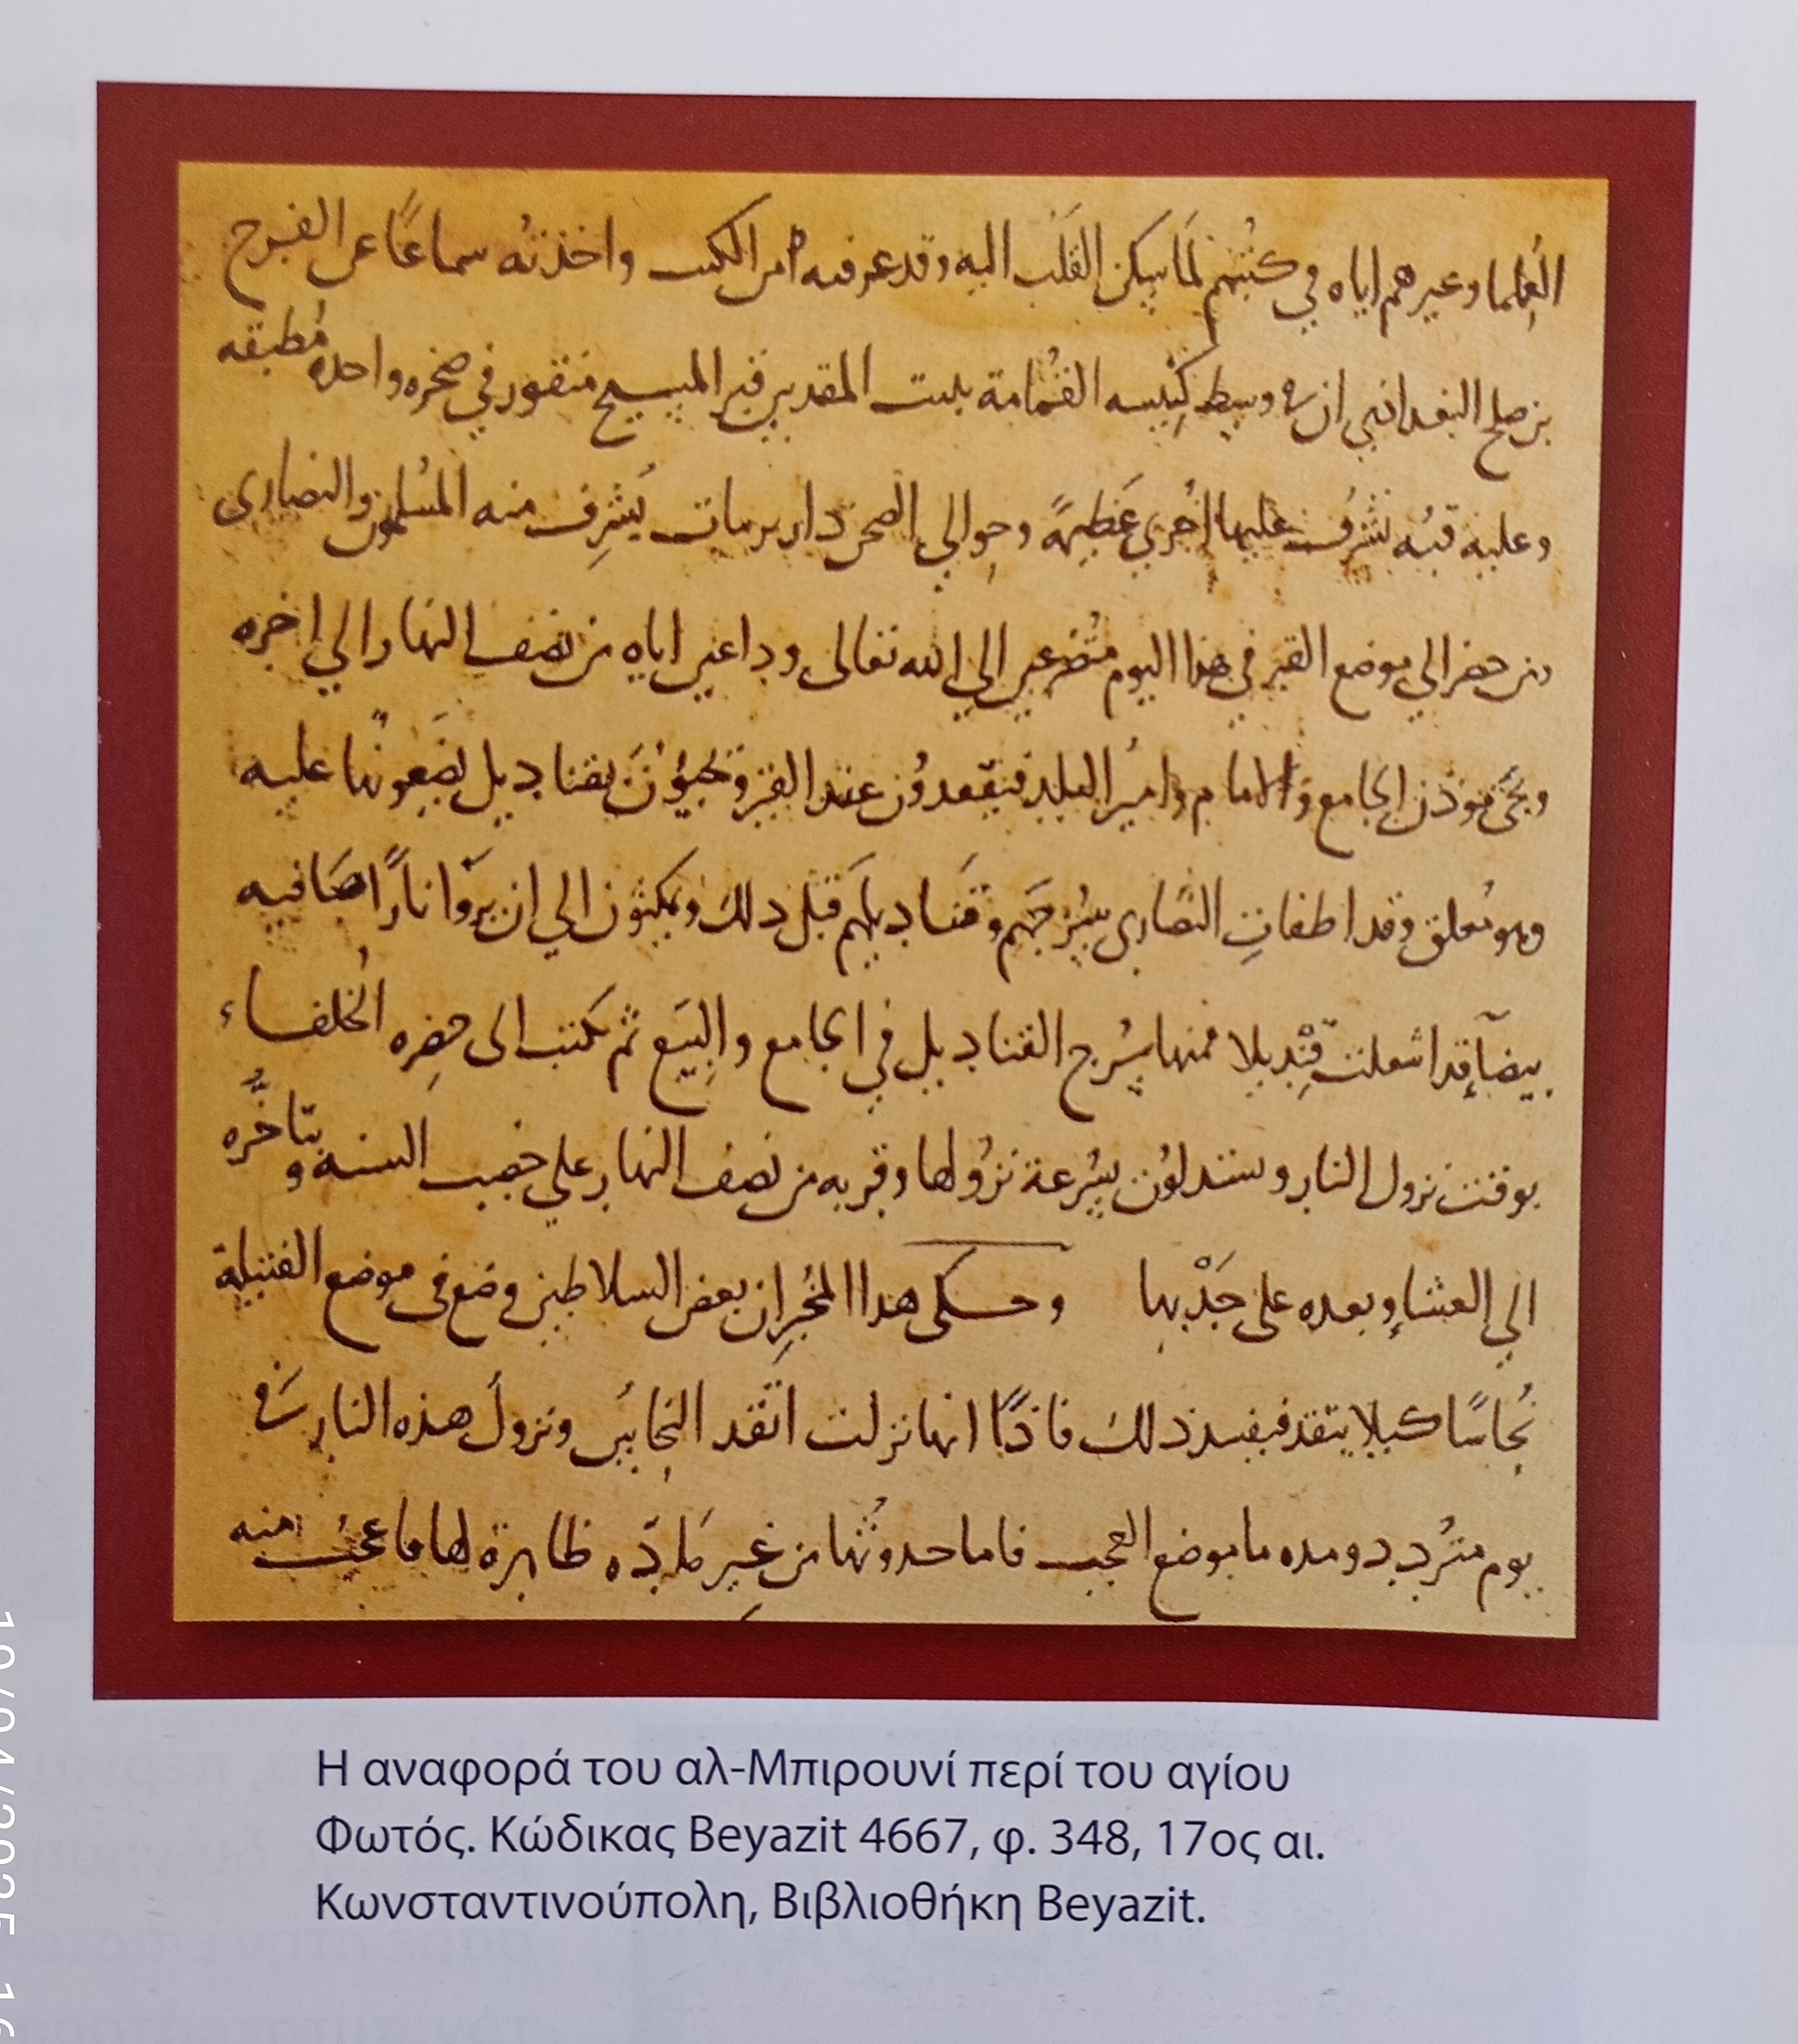 العُلما وغيرهم اياه في كتبهم لَمَا سكن القلب اليه وقد عرفته من الكتب واخذته سماعًا عن الفرج
بن صلح البغداذي ان في وسط كنيسه القُمامة ببيت المقدس قبر المسيح منقور في صخره واحده مُطبقه
وعليه قبُه تشرُف عليها اخري عَظيمةً وحوالي الصخر دار برمات يُشرِف منه المُسلمون والنصارى
ومن حضر الي موضع القبر في هذا اليوم متضرعين الي الله تعالى وداعين اياه من نصف النهار الي اخره
ويجئ موذن الجامع والامام وامير البلد فيقعدون عند القبر ويجيؤن بقناديل يضعونها عليه
وهو مُعلق وقد اطفات النصارى سُرجَهم وقناديلهم قبل ذلك ويمكثون الي ان يروا نارًا صافيه
بيضآء قد اشعلت قنديلا فمنها يُسرج القناديل في الجامع والبِيَع ثم يكتب الى حضره الخُلفاء
بوقت نزول النار ويستدلون بسُرعة نزولها وقربه من نصف النهار على خصب السنه وبتاخُّره
الي العشاء وبعده على جَدْبها وحكى هذا المُخبِر ان بعض السلاطين وضع في موضع الفتيلة
نُحاسًا كيلا يتقد فيفسد ذلك فاذا انها نزلت اتقد النحاس ونزول هذه النار في
يوم متردد ومده ما موضع العجب فاما حدوثها من غير مادّه ظاهرة لها فاعجب منه
Η αναφορά του αλ-Μπιρουνί περί του αγίου
Φωτός. Κώδικας Beyazit 4667, φ. 348, 17ος αι.
Κωνσταντινούπολη, Βιβλιοθήκη Beyazit.